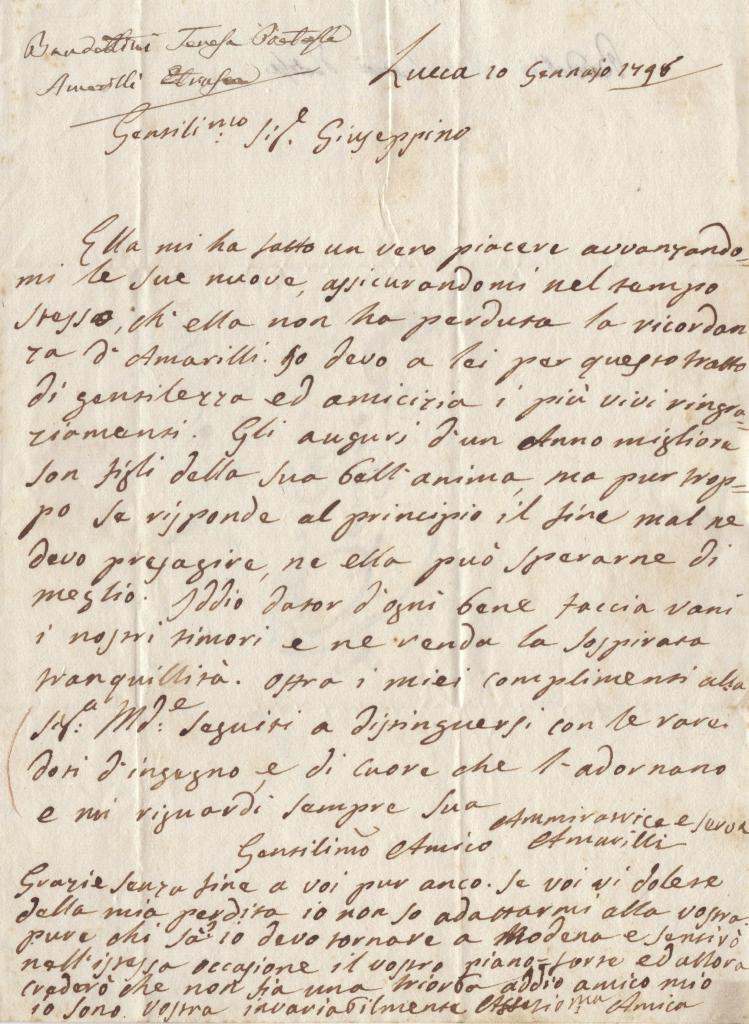 Bandettini Teresa Poetessa
Amarilli Etrusca
Lucca 10 Gennajo 1798
Gentilimo Sigr. Giuseppino
Ella mi ha fatto un vero piacere avvanzando=
mi le sue nuove, assicurandomi nel tempo
stesso, ch' ella non ha perduta la ricordan
za d' Amarilli. Io devo a lei per questo tratto
di gentilezza ed amicizia i più vivi ringra=
ziamenti. Gli auguri d'un Anno migliore
son figli della sua bell'anima, ma pur trop=
po se risponde al principio il fine mal ne
devo presagire, ne ella può sperarne di
meglio. Iddio dator d'ogni bene faccia vani
i nostri timori e ne renda la sospirata
tranquillità. Offra i miei complimenti alla
Siga: Mde: seguiti a distinguersi con le rare
doti d'ingegno, e di cuore che l'adornano
e mi riguardi sempre sua
Ammiratrice e serva
Gentilimo Amico Amarilli
Grazie senza fine a voi pur anco. Se voi vi dolete
della mia perdita io non so adattarmi alla vostra.
pure chi sà? io devo tornare a Modena e sentirò
nell'istessa occasione il vostro piano=forte ed allora
crederò che non sia una tiorba addio amico mio
io sono vostra invariabilmente Amica